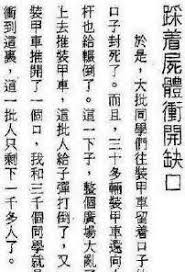 踩着屍體衝開缺口
於是，大批同學們往裝甲車留着口子
口子封死了。而且，三十多輛裝甲車還向
杆也給輾倒了。這一下子，整個廣場大亂了
上去推裝甲車，這批人給子彈打倒了，又
裝甲車推開了一個口，我和三千個同學就
衝到這裏，這一批人只剩下一千多人了。